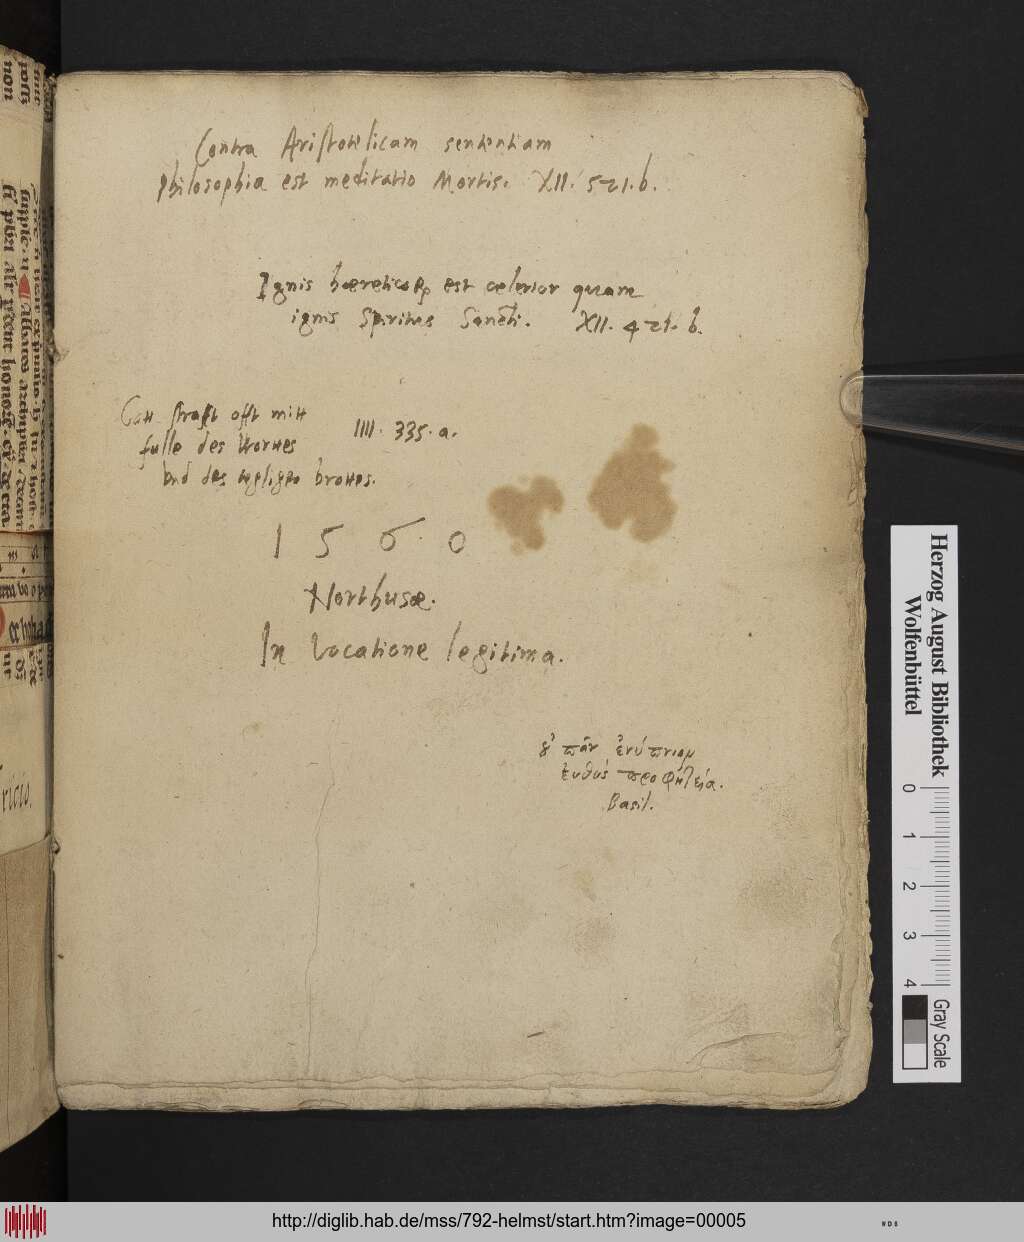 Contra Aristotelicam sententiam
Philosophia est meditatio Mortis. XII. 521. b.
Ignis hæreticoꝝ est celerior quam
ignis Spiritus Sancti. XII. 421. b.
Gott strafft offt mitt
fulle des Wortes
IIII. 335. a.
vnd des brottes.
1560
Northusæ.
In Vocatione legitima.
ȣ̓ πᾶν ἐνύπνιομ
ἐυθὺς προφητεία.
Basil.
ricio.
Herzog August Bibliothek
Wolfenbüttel
0 1 2 3 4
Gray Scale
http://diglib.hab.de/mss/792-helmst/start.htm?image=00005